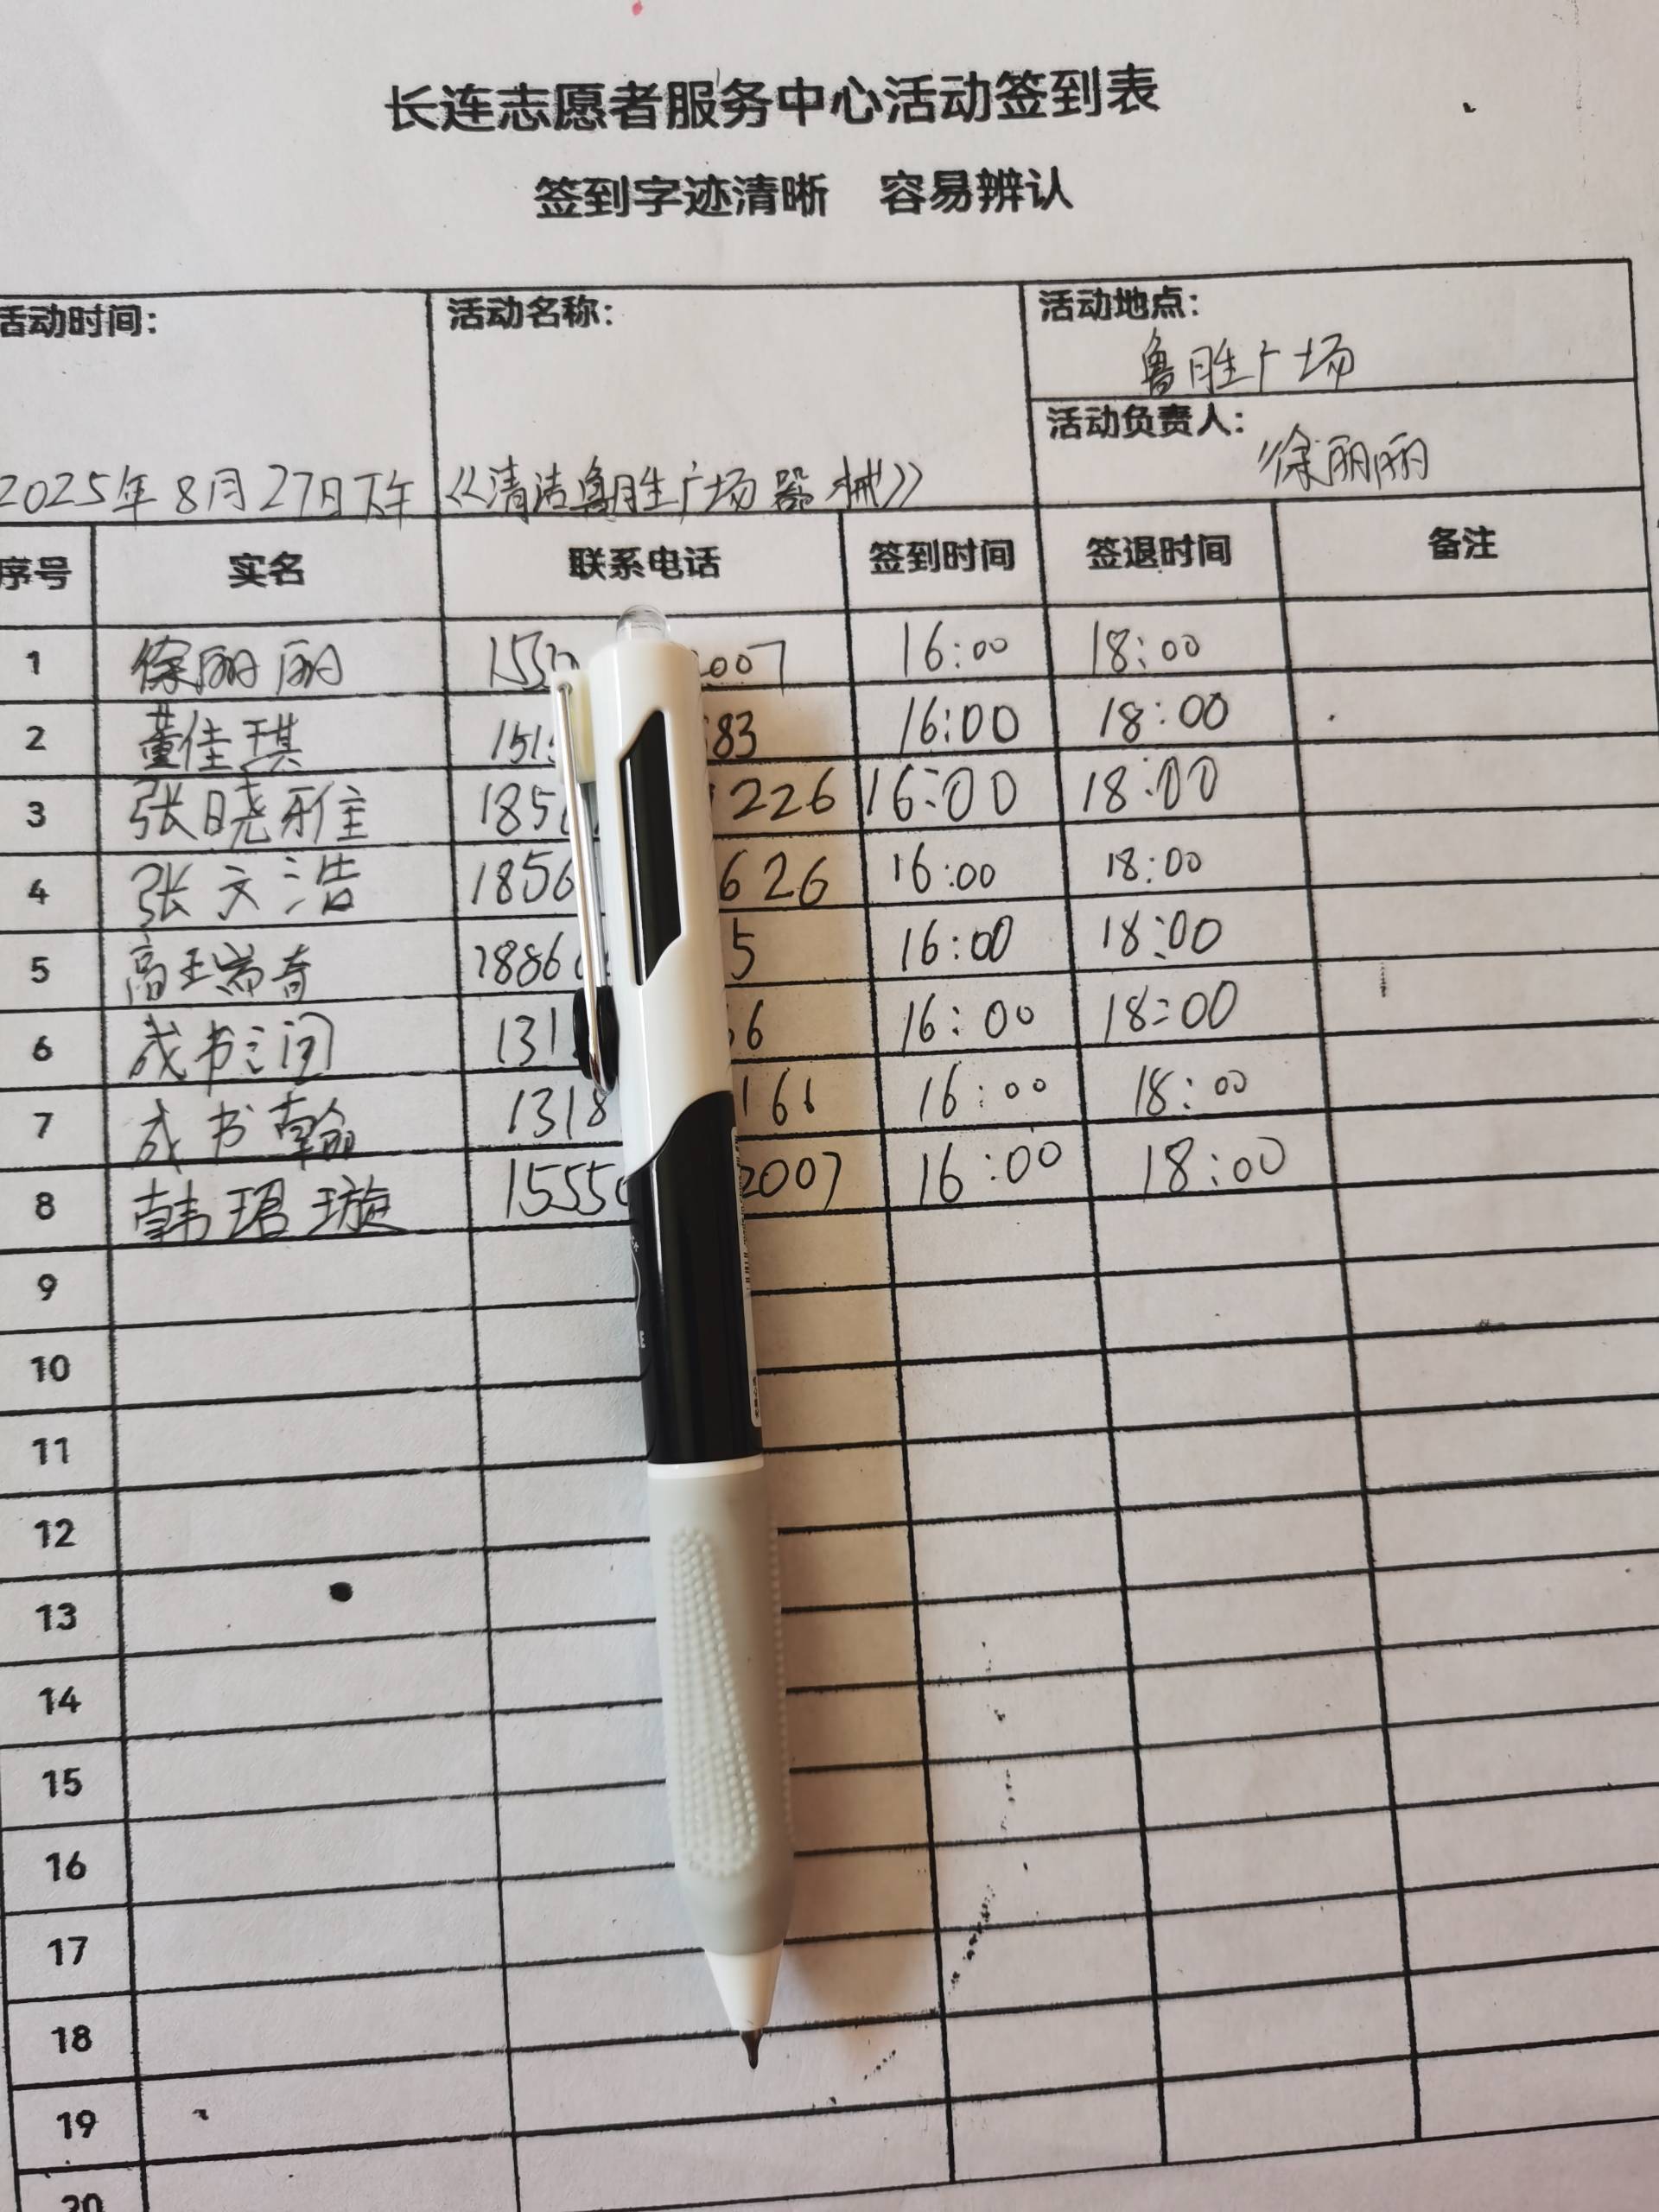 长连志愿者服务中心活动签到表
签到字迹清晰 容易辨认
活动时间: 活动名称: 活动地点:
鲁胜广场
活动负责人:
徐丽丽
2025年8月27日下午 《清洁鲁胜广场器械》
序号 实名 联系电话 签到时间 签退时间 备注
1 徐丽丽 155 007 16:00 18:00
2 董佳琪 151 83 16:00 18:00
3 张晓雅 185 226 16:00 18:00
4 张文浩 1856 626 16:00 18:00
5 高 奇 1886 5 16:00 18:00
6 成书 131 6 16:00 18:00
7 成书翰 1318 161 16:00 18:00
8 韩珺璇 1555 2007 16:00 18:00
9
10
11
12
13
14
15
16
17
18
19
20